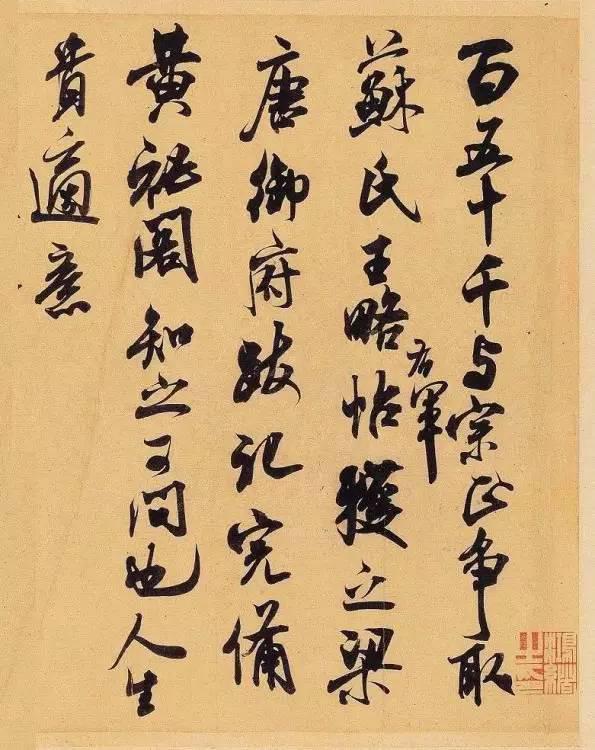 百五十千与宗正争取
右軍
蘇氏王略帖獲之梁
唐御府跋記完備
黃祕閣知之可問也人生
貴適意